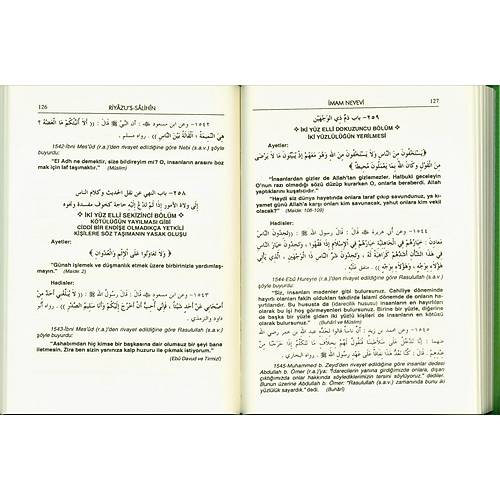 126
RİYÂZU'S-SÂLİHÎN
١٥٤٢- وعن ابن مسعود أن النبي ﷺ قال : (( ألا أنبئكم ما العضة ؟
هي النميمة ؛ القالة بين الناس )) . رواه مسلم .
1542-İbni Mes'ûd (r.a.)'den rivayet edildiğine göre Nebi (s.a.v.) şöyle
buyurdu:
"El Adh ne demektir, size bildireyim mi? O, insanların arasını boz-
mak için laf taşımaktır." (Müslim)
٢٥٨- باب النهي عن نقل الحديث وكلام الناس
إلى ولاة الأمور إذا لم تدع إليه حاجة كخوف مفسدة ونحوه
İKİ YÜZ ELLİ SEKİZİNCİ BÖLÜM
KÖTÜLÜĞÜN YAYILMASI GİBİ
CİDDİ BİR ENDİŞE OLMADIKÇA YETKİLİ
KİŞİLERE SÖZ TAŞIMANIN YASAK OLUŞU
Ayetler:
﴿ ولا تعاونوا على الإثم والعدوان ﴾
"Günah işlemek ve düşmanlık etmek üzere birbirinize yardımlaş-
mayın." (Maide: 2)
Hadisler:
١٥٤٣- وعن ابن مسعود قال : قال رسول الله ﷺ : (( لا يبلغني أحد من
أصحابي عن أحد شيئا ، فإني أحب أن أخرج إليكم وأنا سليم الصدر )) . رواه أبو
داود والترمذي .
1543-İbni Mes'ûd (r.a.)'den rivayet edildiğine göre Rasulullah (s.a.v.)
şöyle buyurdu:
"Ashabımdan hiç kimse bir başkasına dair olumsuz bir şeyi bana
iletmesin. Zira ben sizin yanınıza kalp huzuru ile çıkmak istiyorum."
(Ebû Davud ve Tirmizî)
İMAM NEVEVİ
127
٢٥٩- باب ذم ذي الوجهين
İKİ YÜZ ELLİ DOKUZUNCU BÖLÜM
İKİ YÜZLÜLÜĞÜN YERİLMESİ
Ayetler:
﴿ يستخفون من الناس ولا يستخفون من الله وهو معهم إذ يبيتون ما لا يرضى
من القول وكان الله بما يعملون محيطا ﴾
"İnsanlardan gizler de Allah'tan gizlemezler. Halbuki geceleyin
O'nun razı olmadığı sözü düzüp kurarken O, onlarla beraberdi. Allah
yaptıklarını kuşatıcıdır."
"Haydi siz dünya hayatında onlara taraf çıkıp savundunuz, ya kı-
yamet günü Allah'a karşı onları kim savunacak, yahut onlara kim vekil
olacak?" (Maide: 108-109)
Hadisler:
١٥٤٤- وعن أبي هريرة قال : قال رسول الله ﷺ : (( تجدون الناس
معادن : خيارهم في الجاهلية خيارهم في الإسلام إذا فقهوا ، وتجدون خيار الناس
في هذا الشأن أشدهم له كراهية ، وتجدون شر الناس ذا الوجهين ، الذي يأتي
هؤلاء بوجه ، وهؤلاء بوجه )) . متفق عليه .
1544-Ebû Hureyre (r.a.)'den rivayet edildiğine göre Rasulullah (s.a.v.)
şöyle buyurdu:
"Siz, insanları madenler gibi bulursunuz. Cahiliye döneminde
hayırlı olanları fakih oldukları takdirde İslami dönemde de onların
hayırlılarıdır. Bu hususta (idarecilik) insanların en hayırlıları
olarak bu işi hoş görmeyenleri bulursunuz. Birine bir yüzle, diğerine
de başka bir yüzle giden iki yüzlü kişileri de insanların en şerlileri
olarak bulursunuz." (Buhârî ve Müslim)
١٥٤٥- وعن محمد بن زيد أن ناسا قالوا لجده عبد الله بن عمر رضي الله
عنهما : إنا ندخل على سلاطيننا فنقول لهم بخلاف ما نتكلم إذا خرجنا من
عندهم . قال : كنا نعد هذا نفاقا على عهد رسول الله ﷺ . رواه البخاري .
1545-Muhammed b. Zeyd'den rivayet edildiğine göre insanlar dedesi
Abdullah b. Ömer (r.a.)'ya: "İdarecilerin yanına girdiğimizde onlara, dışarı
çıktığımızda onlar hakkında söylediklerimizin tersini söylüyoruz." dediler.
Bunun üzerine Abdullah b. Ömer: "Rasulullah (s.a.v.) zamanında bunu iki
yüzlülük sayardık." dedi. (Buhârî)